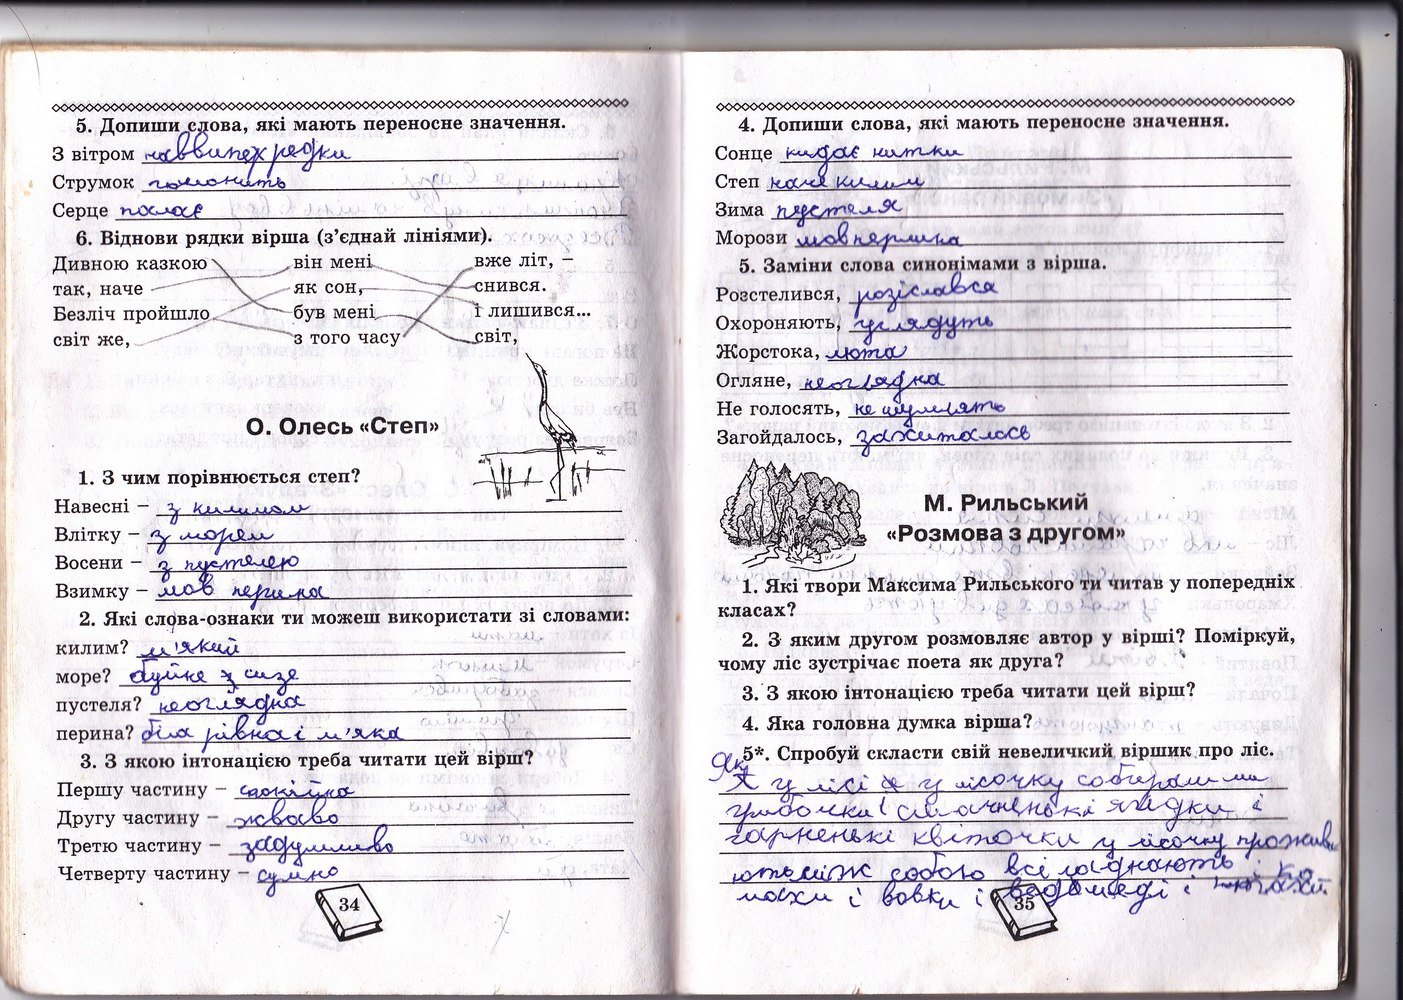 5. Допиши слова, які мають переносне значення.
З вітром
Струмок гомонить
Серце палає
6. Віднови рядки вірша (з’єднай лініями).
Дивною казкою він мені вже літ, –
так, наче як сон, снився.
Безліч пройшло був мені і лишився...
світ же, з того часу світ,
О. Олесь «Степ»
1. З чим порівнюється степ?
Навесні – з килимом
Влітку – з морем
Восени – з пустелею
Взимку – мов перина
2. Які слова-ознаки ти можеш використати зі словами:
килим? м'який
море? буйне з сизе
пустеля? неоглядна
перина? біла рівна і м'яка
3. З якою інтонацією треба читати цей вірш?
Першу частину – спокійна
Другу частину – жваво
Третю частину – задумливо
Четверту частину – сумно
34
4. Допиши слова, які мають переносне значення.
Сонце кидає нитки
Степ наче килим
Зима пустеля
Морози мов перина
5. Заміни слова синонімами з вірша.
Розстелився, розіславса
Охороняють, углядуть
Жорстока, люта
Огляне, неоглядна
Не голосять, не шумлять
Загойдалось, захиталось
М. Рильський
«Розмова з другом»
1. Які твори Максима Рильського ти читав у попередніх
класах?
2. З яким другом розмовляє автор у вірші? Поміркуй,
чому ліс зустрічає поета як друга?
3. З якою інтонацією треба читати цей вірш?
4. Яка головна думка вірша?
5*. Спробуй скласти свій невеличкий віршик про ліс.
Як у лісі у лісочку собирали ми
грибочки і смачненькі ягідки і
гарненькі квіточки у лісочку прожива
ють між собою всі
і вовки і ведмеді і
35